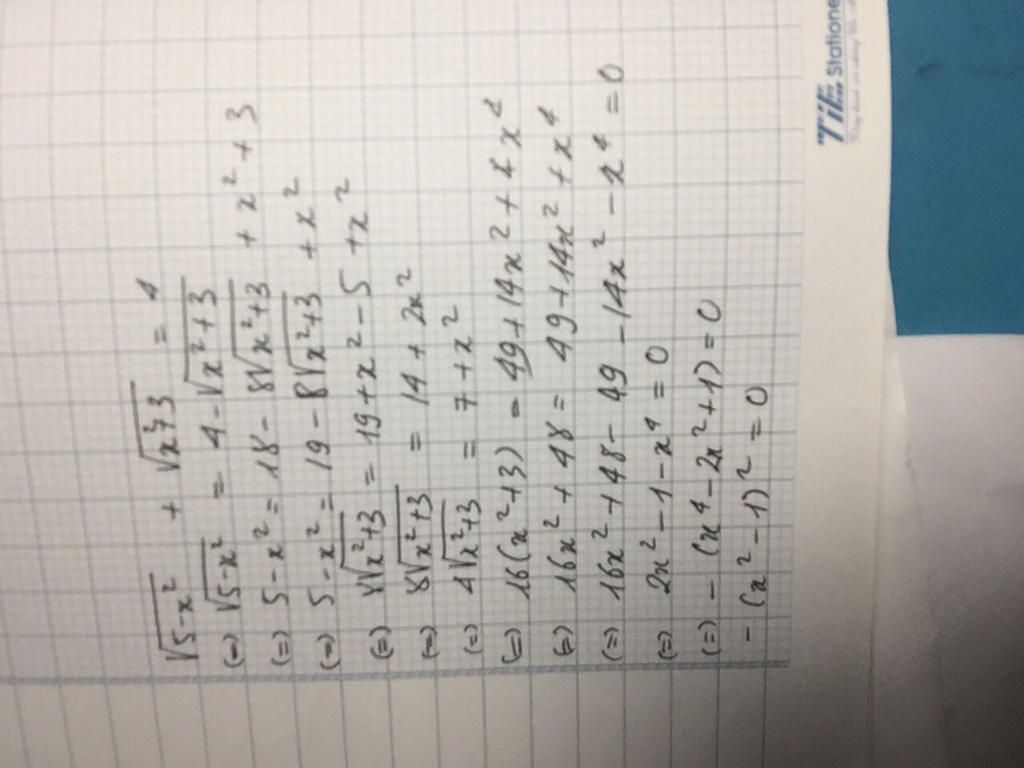 √(5-x²) + √(x²+3) = 4
(=) √(5-x²) = 4-√(x²+3)
(=) 5-x² = 18 - 8√(x²+3) + x² + 3
(=) 5-x² = 19 - 8√(x²+3) + x²
(=) 8√(x²+3) = 19+x²-5 +x²
(=) 8√(x²+3) = 14 + 2x²
(=) 4√(x²+3) = 7+x²
(=) 16(x²+3) = 49+14x²+x⁴
(=) 16x²+48 = 49+14x²+x⁴
(=) 16x²+48-49-14x²-x⁴=0
(=) 2x²-1-x⁴=0
(=) -(x⁴-2x²+1)=0
-(x²-1)²=0
TiE Statione